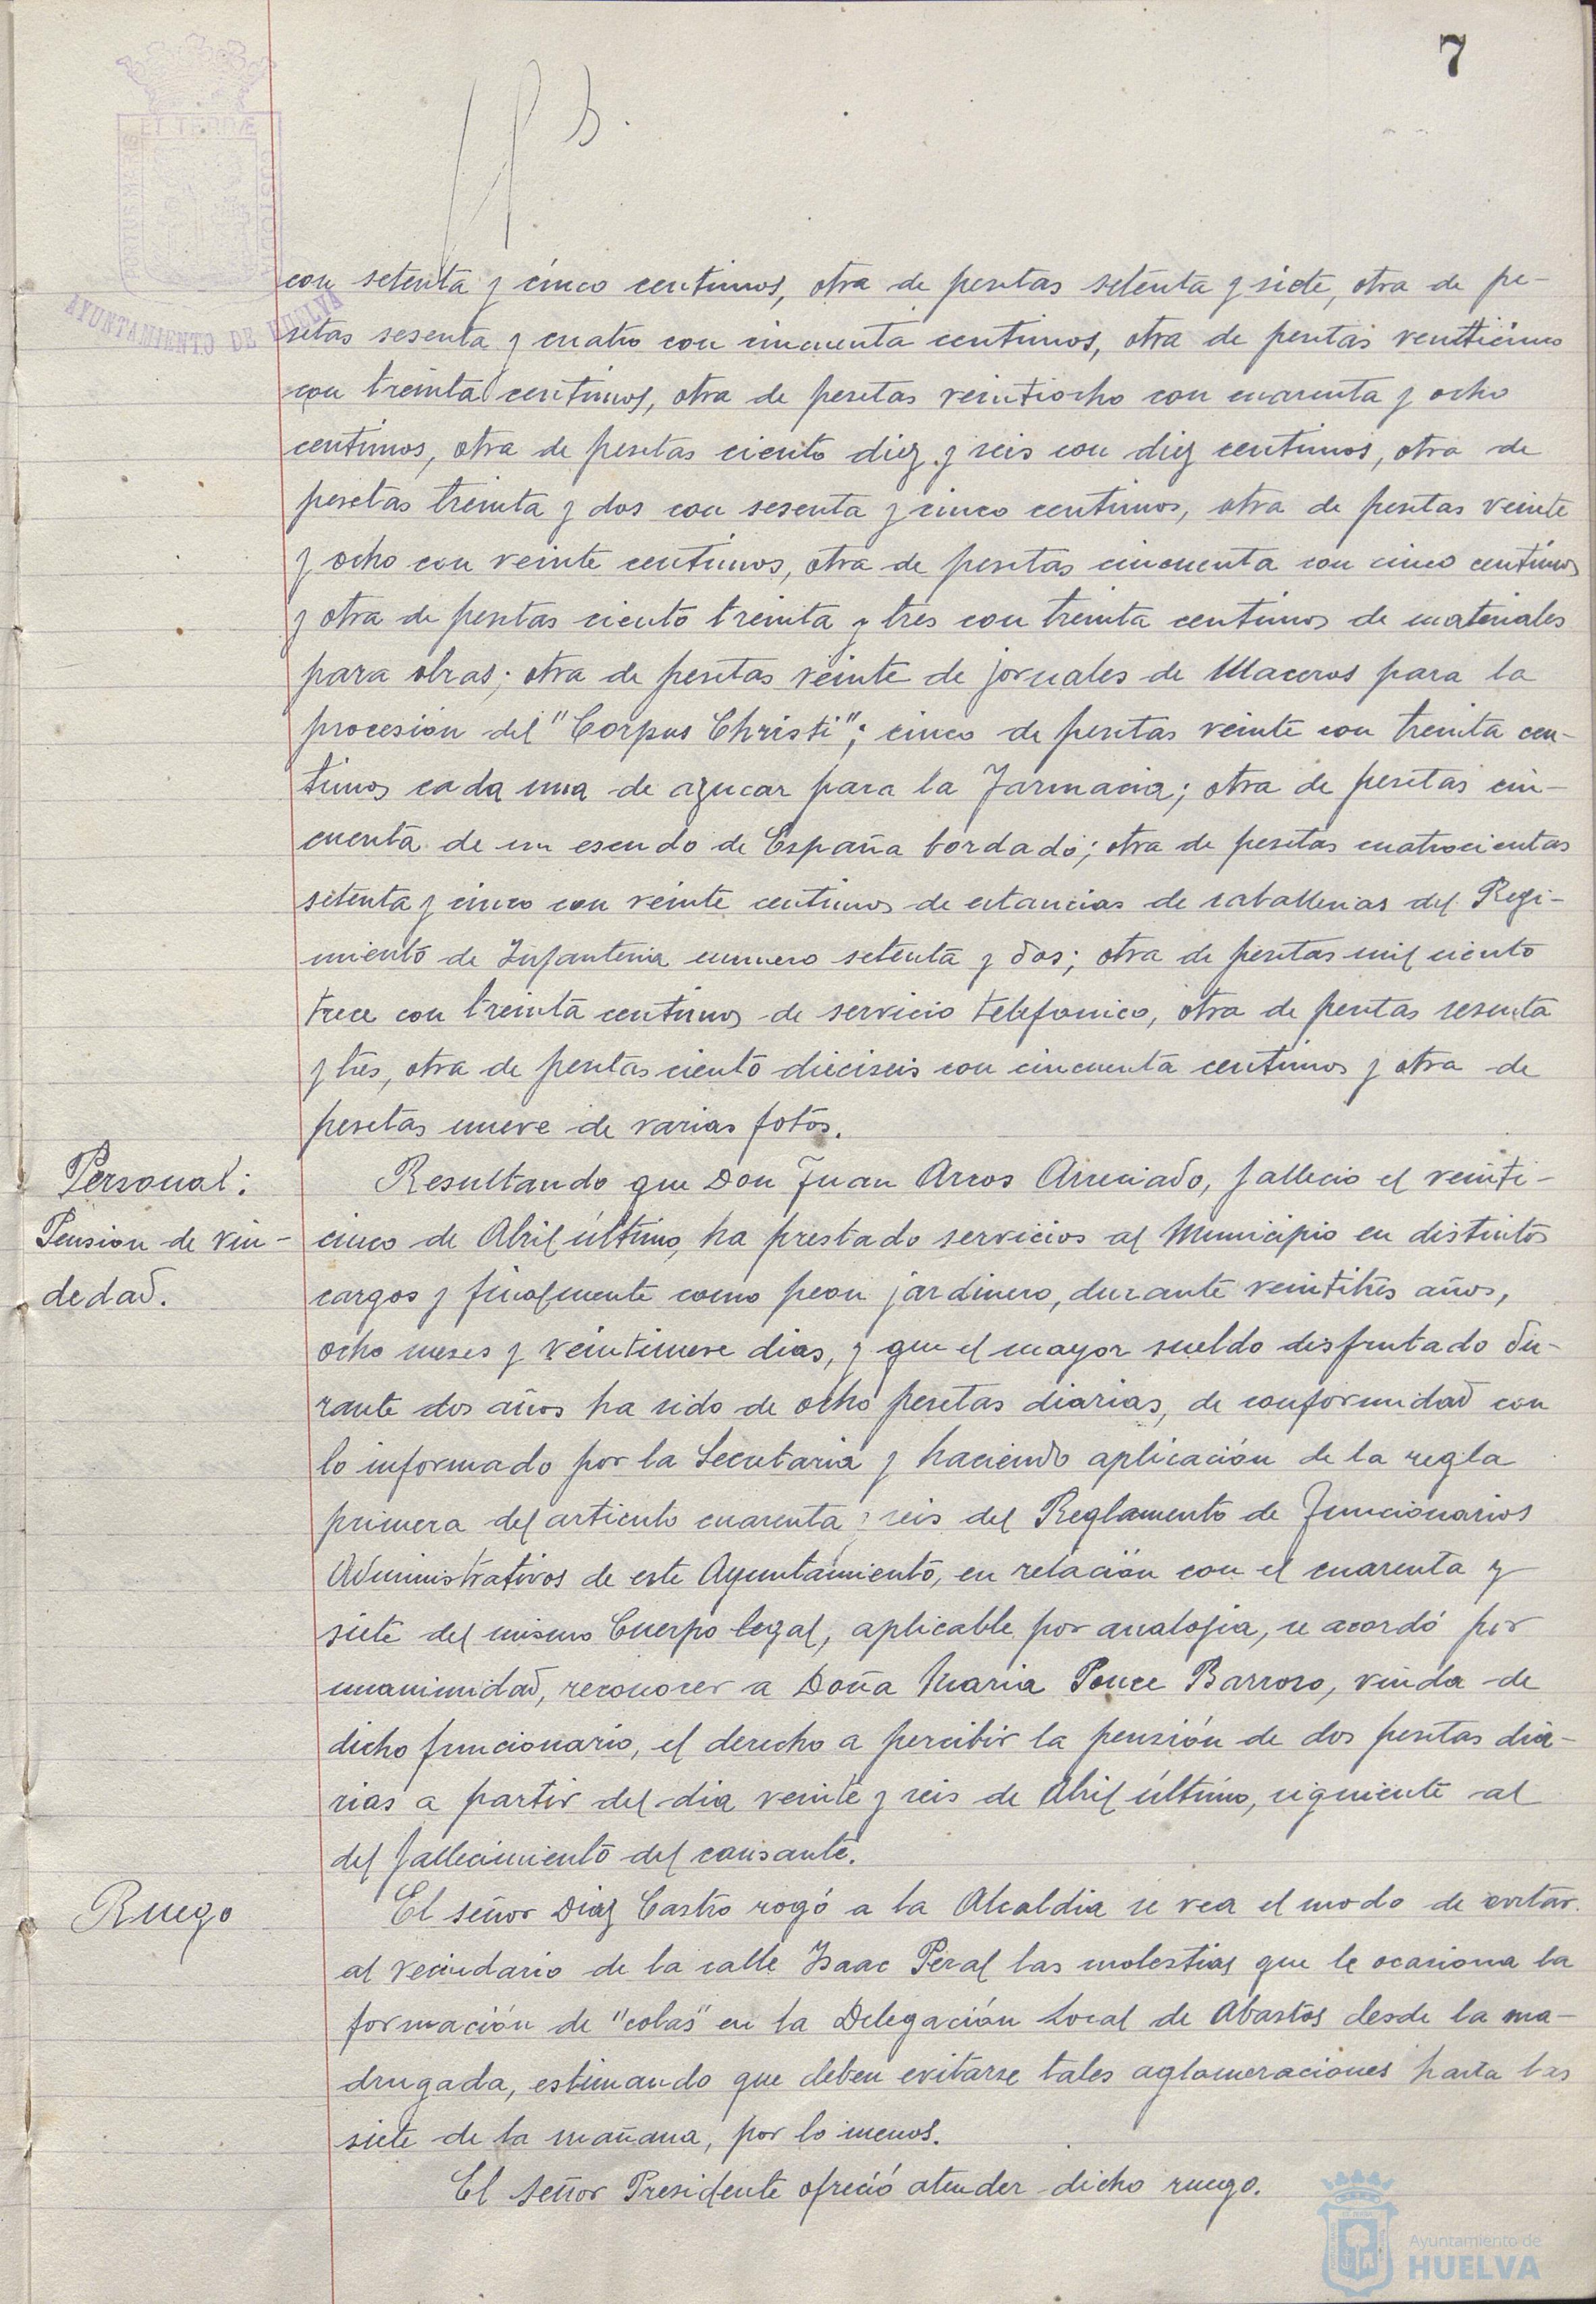 7
AYUNTAMIENTO DE HUELVA
con setenta y cinco centimos, otra de pesetas setenta y siete, otra de pe-
setas sesenta y cuatro con cincuenta centimos, otra de pesetas venticinco
con treinta centimos, otra de pesetas veintiocho con cuarenta y ocho
centimos, otra de pesetas ciento diez y seis con diez centimos, otra de
pesetas treinta y dos con sesenta y cinco centimos, otra de pesetas veinte
y ocho con veinte centimos, otra de pesetas cincuenta con cinco centimos
y otra de pesetas ciento treinta y tres con treinta centimos de materiales
para obras; otra de pesetas veinte de jornales de Maceros para la
procesión del "Corpus Christi"; cinco de pesetas veinte con treinta cen-
timos cada una de azucar para la Farmacia; otra de pesetas cin-
cuenta de un escudo de España bordado; otra de pesetas cuatrocientas
setenta y cinco con veinte centimos de estancias de caballerias del Regi-
miento de Infanteria numero setenta y dos; otra de pesetas mil ciento
trece con treinta centimos de servicio telefonico, otra de pesetas sesenta
y tres, otra de pesetas ciento dieciseis con cincuenta centimos y otra de
pesetas nueve de varias fotos.
Personal:
Pension de viu-
dedad.
Resultando que Don Juan Arcos Arreciado, fallecio el veinti-
cinco de Abril último, ha prestado servicios al Municipio en distintos
cargos y finalmente como peon jardinero, durante veintitrés años,
ocho meses y veintinueve dias, y que el mayor sueldo disfrutado du-
rante dos años ha sido de ocho pesetas diarias, de conformidad con
lo informado por la Secretaria y haciendo aplicación de la regla
primera del articulo cuarenta y seis del Reglamento de Funcionarios
Administrativos de este Ayuntamiento, en relación con el cuarenta y
siete del mismo Cuerpo legal, aplicable por analogia, se acordó por
unanimidad, reconocer a Doña Maria Ponce Barroso, viuda de
dicho funcionario, el derecho a percibir la pensión de dos pesetas dia-
rias a partir del dia veinte y seis de Abril último, siguiente al
del fallecimiento del causante.
Ruego
El señor Diaz Castro rogó a la Alcaldia se vea el modo de evitar
al vecindario de la calle Isaac Peral las molestias que le ocasiona la
formación de "colas" en la Delegación Local de Abastos desde la ma-
drugada, estimando que deben evitarse tales aglomeraciones hasta las
siete de la mañana, por lo menos.
El señor Presidente ofreció atender dicho ruego.
Ayuntamiento de
HUELVA